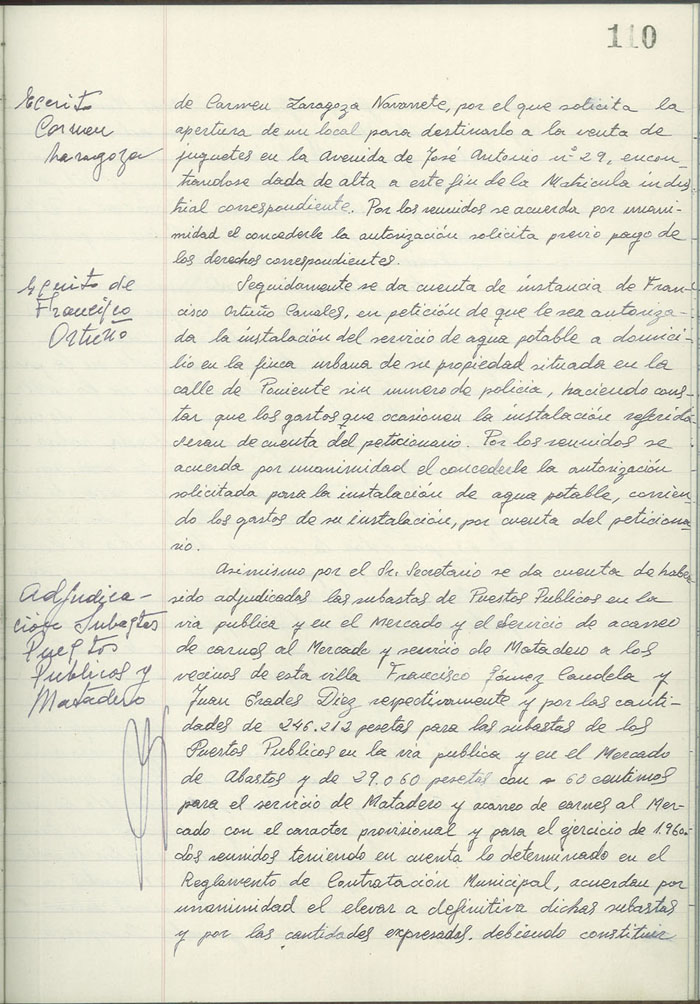 110
Escrito
Carmen
Zaragoza
de Carmen Zaragoza Navarrete, por el que solicita la
apertura de un local para destinarlo a la venta de
juguetes en la Avenida de José Antonio nº 29, encon-
trandose dada de alta a este fin de la Matricula indus
trial correspondiente. Por los reunidos se acuerda por unani-
midad el concederle la autorización solicita previo pago de
los derechos correspondientes.
Escrito de
Francisco
Ortuño
Seguidamente se da cuenta de instancia de Fran-
cisco Ortuño Canales, en petición de que le sea autoriza-
da la instalación del servicio de agua potable a domici-
lio en la finca urbana de su propiedad situada en la
calle de Poniente sin numero de policia, haciendo cons-
tar que los gastos que ocasionen la instalación referida
seran de cuenta del peticionario. Por los reunidos se
acuerda por unanimidad el concederle la autorización
solicitada para la instalación de agua potable, corrien-
do los gastos de su instalación, por cuenta del peticiona-
rio.
Adjudica-
ción Subastas
Puestos
Publicos y
Matadero
Asimismo por el Sr. Secretario se da cuenta de haber
sido adjudicadas las subastas de Puestos Publicos en la
via publica y en el Mercado y el Servicio de acarreo
de carnes al Mercado y servicio de Matadero a los
vecinos de esta villa Francisco Gómez Candela y
Juan Prades Diez respectivamente y por las canti-
dades de 246.212 pesetas para las subastas de los
Puestos Publicos en la via publica y en el Mercado
de Abastos y de 29.060 pesetas con 60 centimos
para el servicio de Matadero y acarreo de carnes al Mer-
cado con el caracter provisional y para el ejercicio de 1.960.-
Los reunidos teniendo en cuenta lo determinado en el
Reglamento de Contratación Municipal, acuerdan por
unanimidad el elevar a definitiva dichas subastas
y por las cantidades expresadas. debiendo constituir